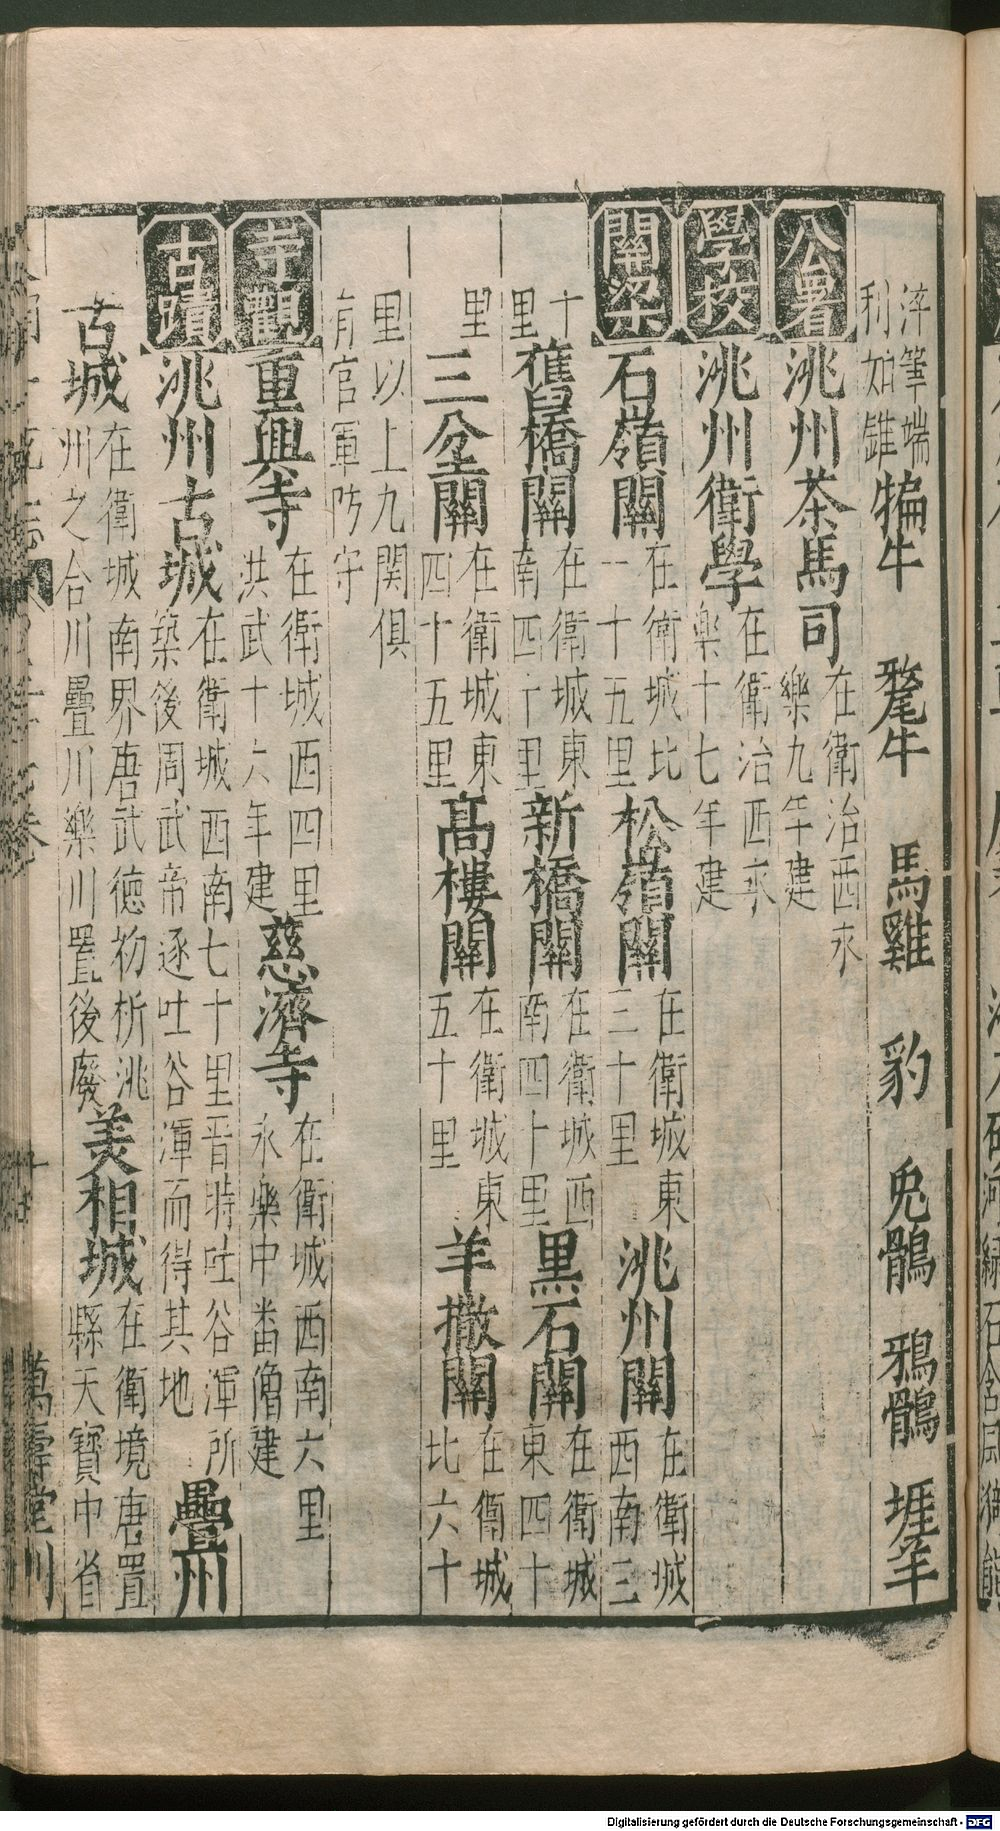 淬筆端
利如錐
犏牛　犛牛　馬雞　豹　兔鶻　鴉鶻　㹶羊
公署
洮州茶馬司
在衛治西永
樂九年建
學挍
洮州衛學
在衛治西永
樂十七年建
關梁
石嶺關
在衛城比
一十五里
松嶺關
在衛城東
三十里
洮州關
在衛城
西南三
十
里
舊橋關
在衛城東
南四十里
新橋關
在衛城西
南四十里
黒石關
在衛城
東四十
里
三岔關
在衛城東
四十五里
高樓關
在衛城東
五十里
羊撒關
在衛城
比六十
里以上九関俱
有官軍防守
寺觀
重興寺
在衛城西四里
洪武十六年建
慈濟寺
在衛城西南六里
永樂中畨僧建
古蹟
洮州古城
在衛城西南七十里晋時吐谷渾所
築後周武帝逐吐谷渾而得其地
疊州
古城
在衛城南界唐武德初析洮
州之合川疊川樂川置後廢
美相城
在衛境唐置
縣天寶中省
萬壽堂刊